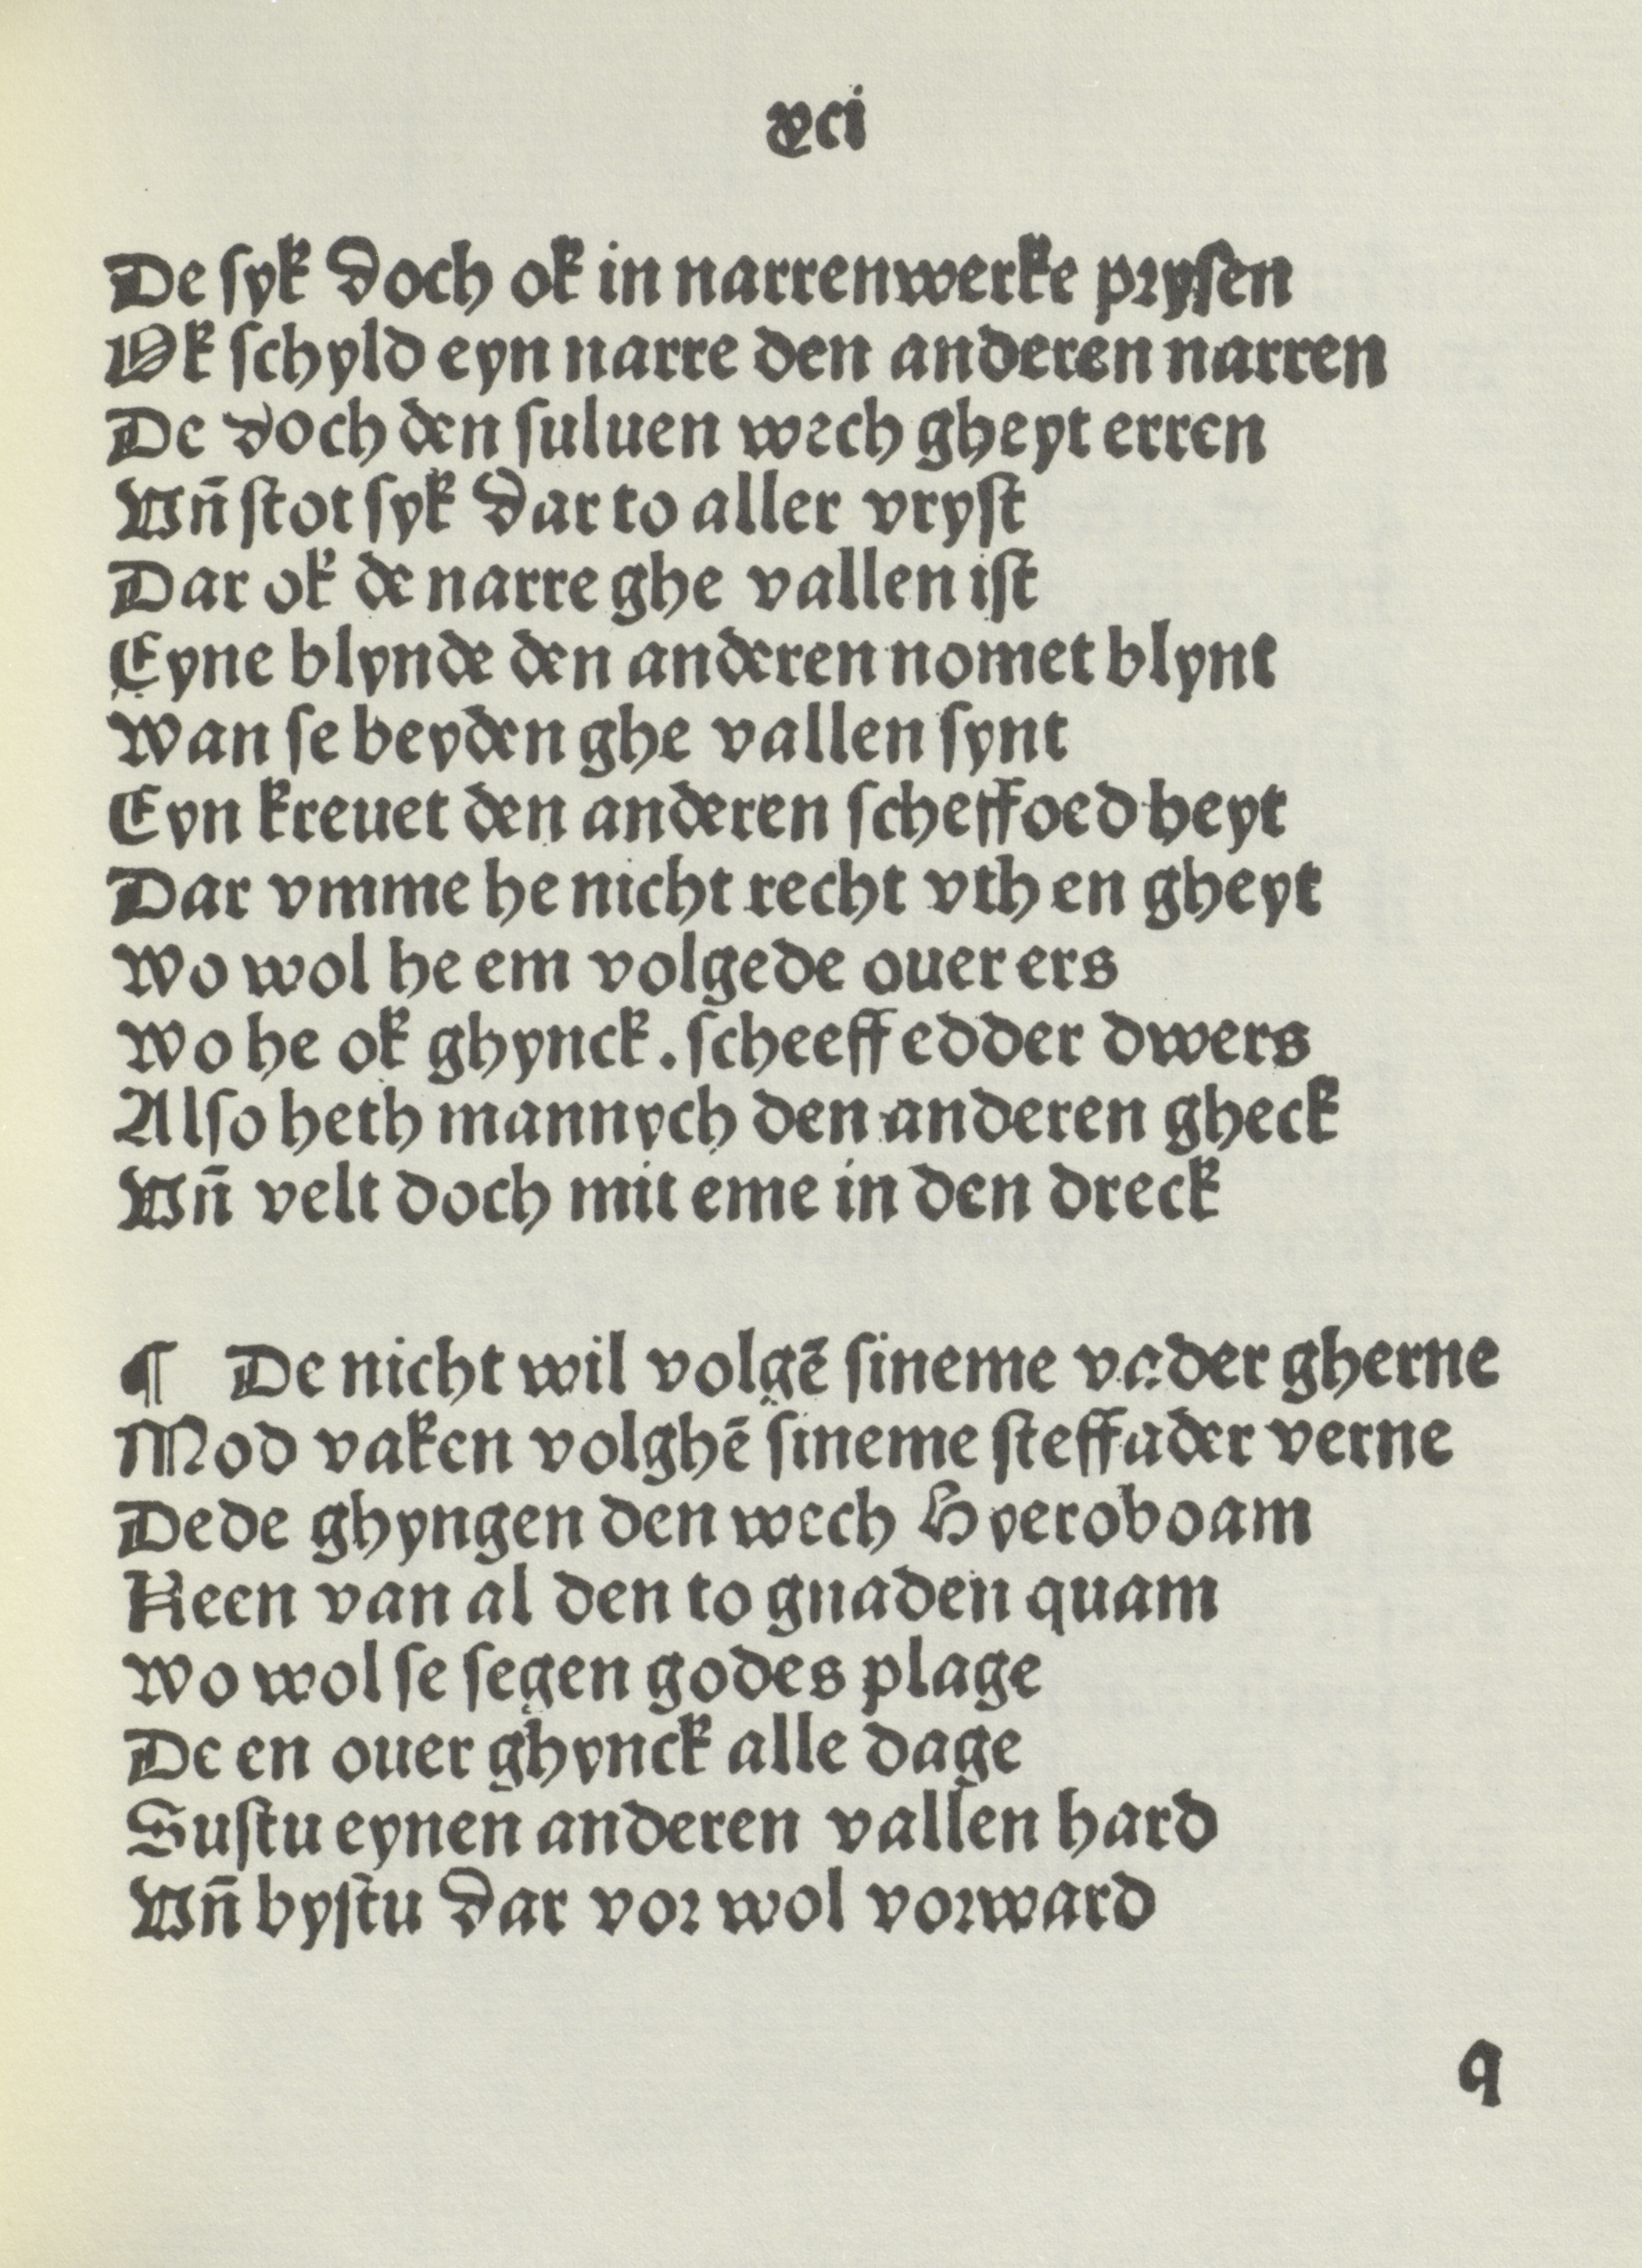 xci
De ſyk doch ok in narrenwerke pꝛyſen
Ok ſchyld eyn narre den anderen narren
De doch den ſuluen wech gheyt erren
Vn̄ ſtot ſyk dar to aller vryſt
Dar ok de narre ghe vallen iſt
Eyne blynde den anderen nomet blynt
Wan ſe beyden ghe vallen ſynt
Eyn kreuet den anderen ſcheffoed heyt
Dar vmme he nicht recht vth en gheyt
Wo wol he em volgede ouer ers
Wo he ok ghynck. ſcheeff edder dwers
Alſo heth mannych den anderen gheck
Vn̄ velt doch mit eme in den dreck
¶ De nicht wil volgē ſineme vader gherne
Mod vaken volghē ſineme ſteffader verne
Dede ghyngen den wech Hyeroboam
Keen van al den to gnaden quam
Wo wol ſe ſegen godes plage
De en ouer ghynck alle dage
Suſtu eynen anderen vallen hard
Vn̄ byſtu dar voꝛ wol voꝛward
q